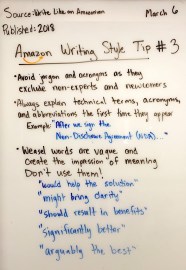 Source: Write Like an Amazonian March 6
Published: 2018
Amazon Writing Style Tip #3
• Avoid jargon and acronyms as they
exclude non-experts and newcomers
• Always explain technical terms, acronyms,
and abbreviations the first time they appear
Example: "After we sign the
Non-Disclosure Agreement (NDA)..."
• Weasel words are vague and
create the impression of meaning
Don't use them!
"would help the solution"
"might bring clarity"
"should result in benefits"
"significantly better"
"arguably the best"